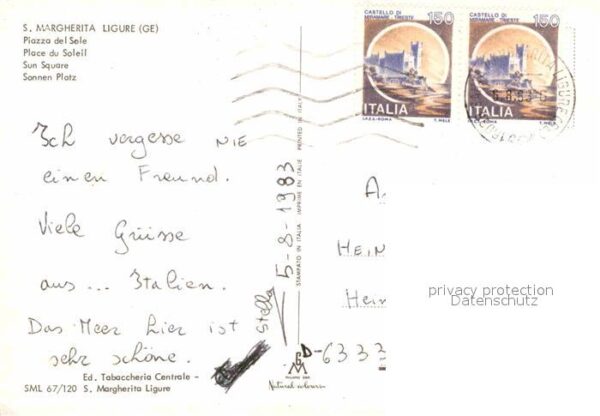 S. MARGHERITA LIGURE (GE)
Piazza del Sole
Place du Soleil
Sun Square
Sonnen Platz
CASTELLO DI
MIRAMARE - TRIESTE
150
ITALIA
I.P.Z.S. - ROMA
T. MELE
CASTELLO DI
MIRAMARE - TRIESTE
150
ITALIA
I.P.Z.S. - ROMA
T. MELE
Ich vergesse NIE
einen Freund.
Viele Grüsse
aus... Italien.
Das Meer hier ist
sehr schöne.
stella
5-8-1983
STAMPATO IN ITALIA IMPRIME EN ITALIE PRINTED IN ITALY
A
HEIN
Hein
D-6333
privacy protection
Datenschutz
Ed. Tabaccheria Centrale -
SML 67/120 S. Margherita Ligure
GM
Natural colours